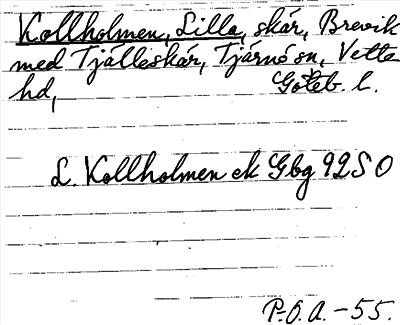 Kollholmen, Lilla, skär, Brevik
med Tjälleskär, Tjärnö sn, Vette
hd, Göteb. l.
L. Kollholmen ek Gbg 92 SO
P.O.A. -55.